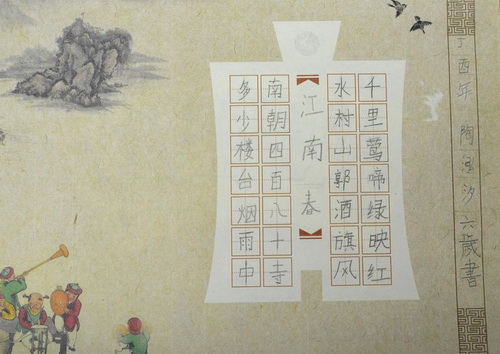 江南春
千里莺啼绿映红
水村山郭酒旗风
南朝四百八十寺
多少楼台烟雨中
丁酉年 陶汐六歲書